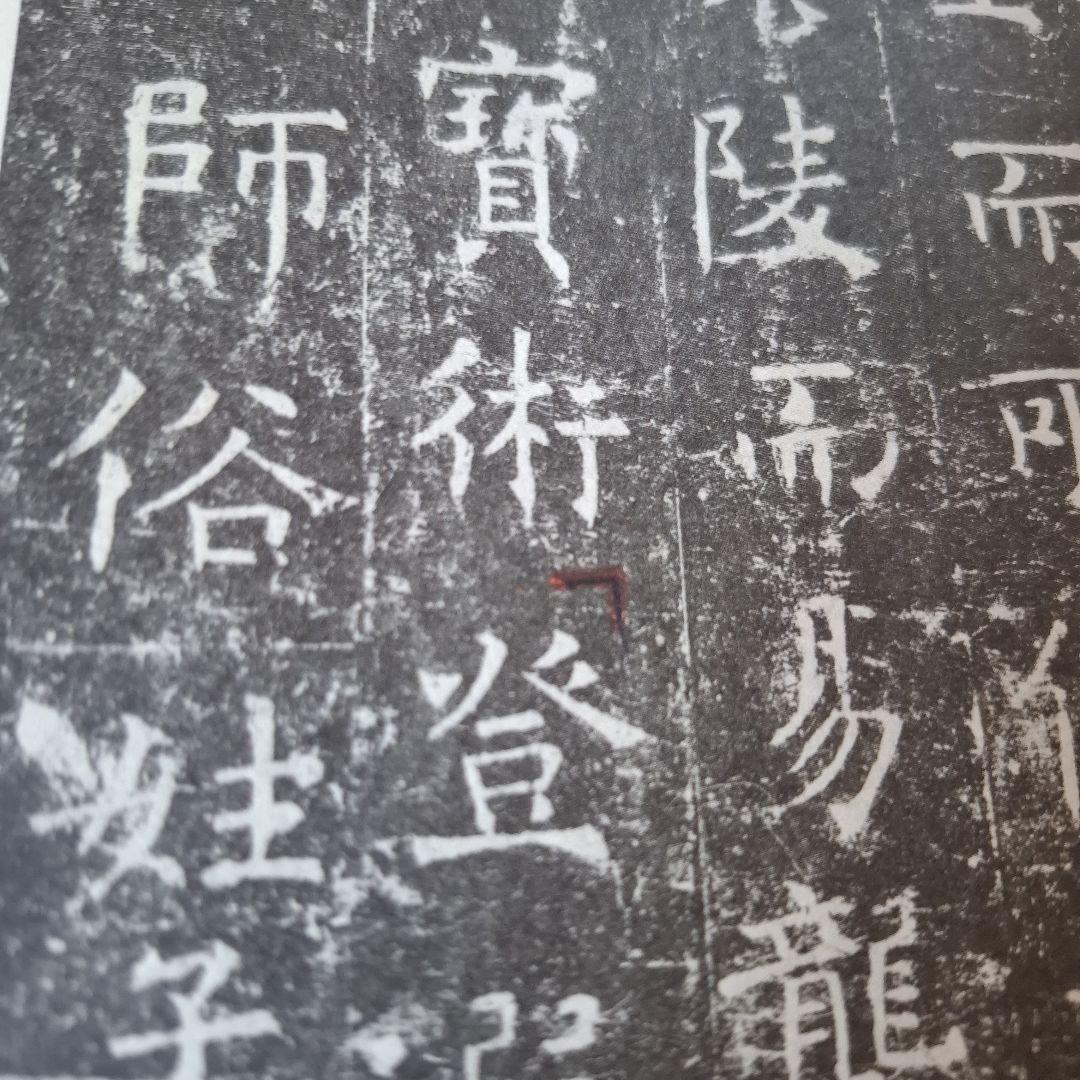 而可
陵而易龍
寶術登
師俗姓子